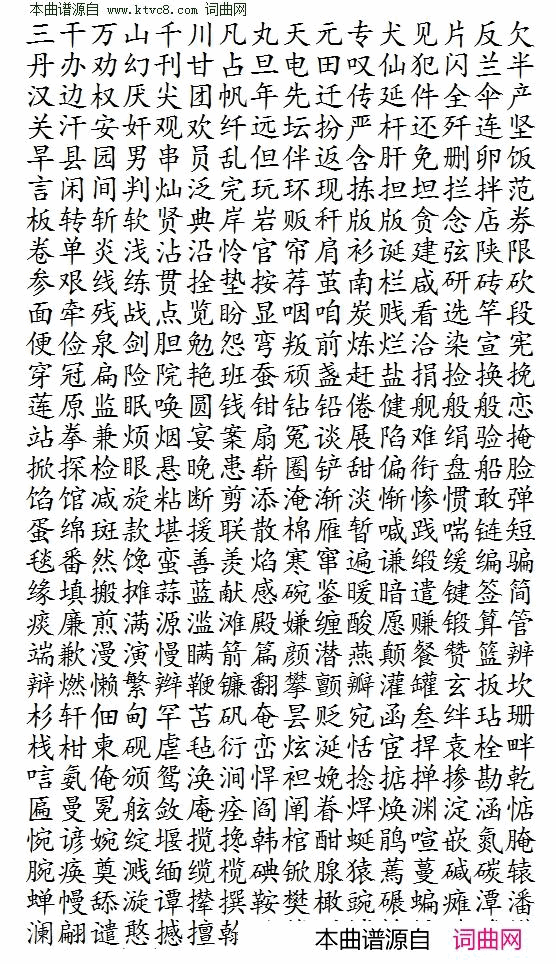 本曲谱源自 www.ktvc8.com 词曲网
三干万山千川凡丸天元专犬见片反欠
丹办劝幻刊甘占旦电田叹仙犯闪兰半
汉边权厌尖团帆年先迁传延件全伞产
关汗安奸观欢纤远坛扮严杆还歼连坚
旱县园男串员乱但伴返含肝免删卵饭
言闲间判灿泛完玩环现拣担坦拦拌范
板转斩软贤典岸岩贩秆版版贪念店券
卷单炎浅沾沿怜官帘肩衫诞建弦陕限
参艰线练贯拴垫按荐茧南栏咸研砖砍
面牵残战点览盼显咽咱炭贱看选竿段
便俭泉剑胆勉怨弯叛前炼烂洽染宣宪
穿冠扁险院艳班蚕顽盏赶盐捐捡换挽
莲原监眠唤圆钱钳钻铅倦健舰般般恋
站拳兼烦烟宴案扇冤谈展陷难绢验掩
掀探检眼悬晚患崭圈铲甜偏衔盘船脸
馅馆减旋粘断剪添淹渐淡惭惨惯敢弹
蛋绵斑款堪援联散棉雁暂喊践喘链短
毯番然馋蛮善羡焰寒窜遍谦缎缓编骗
缘填搬摊蒜蓝献感碗鉴暖暗遣键签简
痰廉煎满源滥滩殿嫌缠酸愿赚锻算管
端歉漫演慢瞒箭篇颜潜燕颠餐赞篮辨
辩燃懒繁辫鞭镰翻攀颤瓣灌罐玄扳坎
杉轩佃甸罕苫矾奄昙贬宛函叁绊玷珊
栈柑柬砚虐毡衍峦炫涎恬宦捍袁栓畔
唁氨俺颁鸳涣涧悍袒娩捻掂掸掺勘乾
匾曼冕舷敛庵痊阎阐眷焊焕渊淀涵惦
惋谚婉绽堰揽搀韩棺酣蜒鹃喧嵌氮腌
腕痪奠溅缅缆榄碘锨腺猿蔫蔓碱碳辕
蝉幔舔漩谭撵撰鞍樊橄豌碾蝙瘫潭潘
澜翩谴憨撼擅
本曲谱源自 词曲网